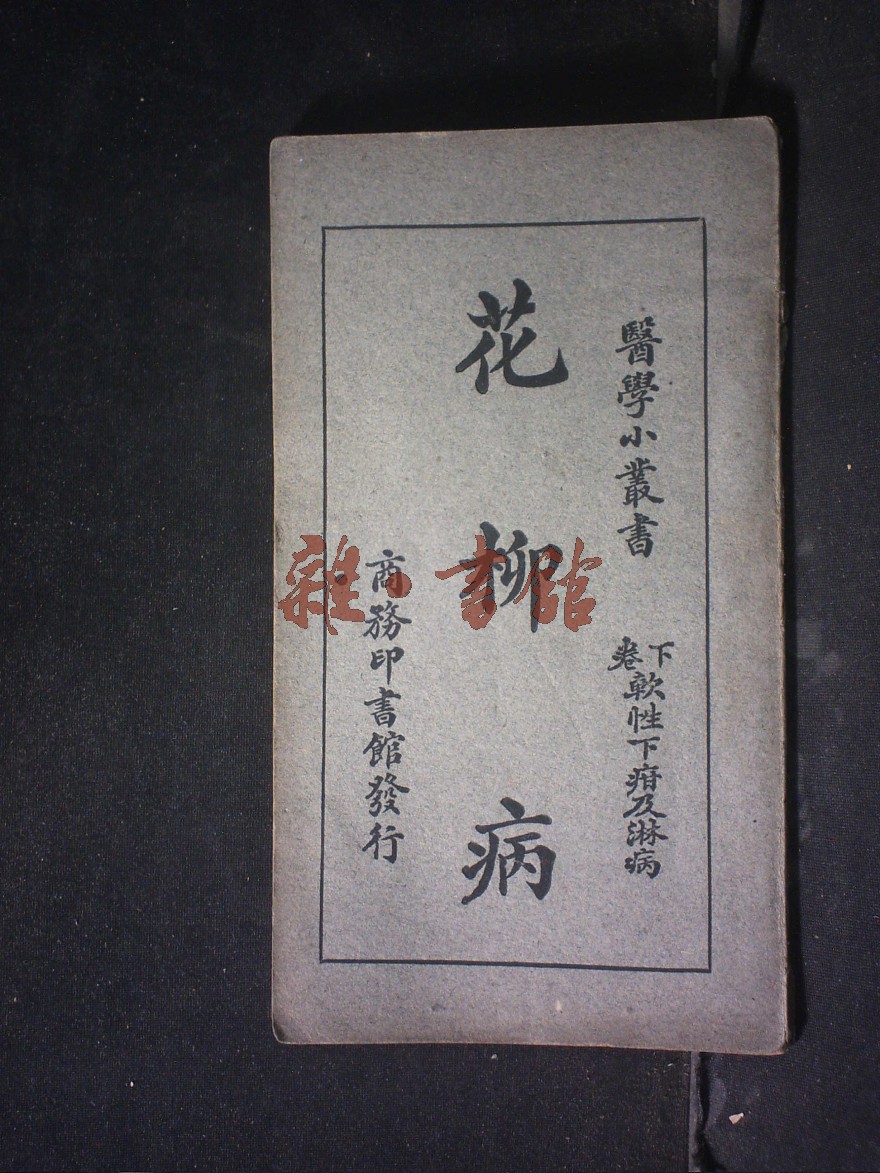 醫學小叢書
下卷 軟性下疳及淋病
花柳病
商務印書館發行
雜·書館